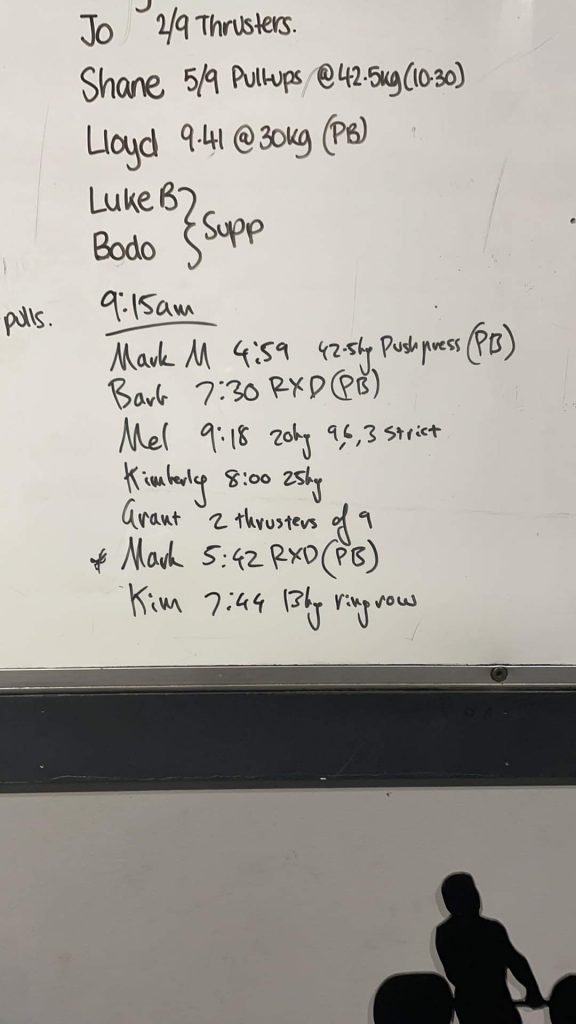 Jo 2/9 Thrusters.
Shane 5/9 Pull-ups @42.5kg (10.30)
Lloyd 9.41 @ 30kg (PB)
Luke B
Bodo } Supp
pulls.
9:15am
Mark M 4:59 42.5kg Push press (PB)
Barb 7:30 RXD (PB)
Mel 9:18 20kg 9,6,3 strict
Kimberly 8:00 25kg
Grant 2 thrusters of 9
* Mark 5:42 RXD (PB)
Kim 7:44 13kg ring row